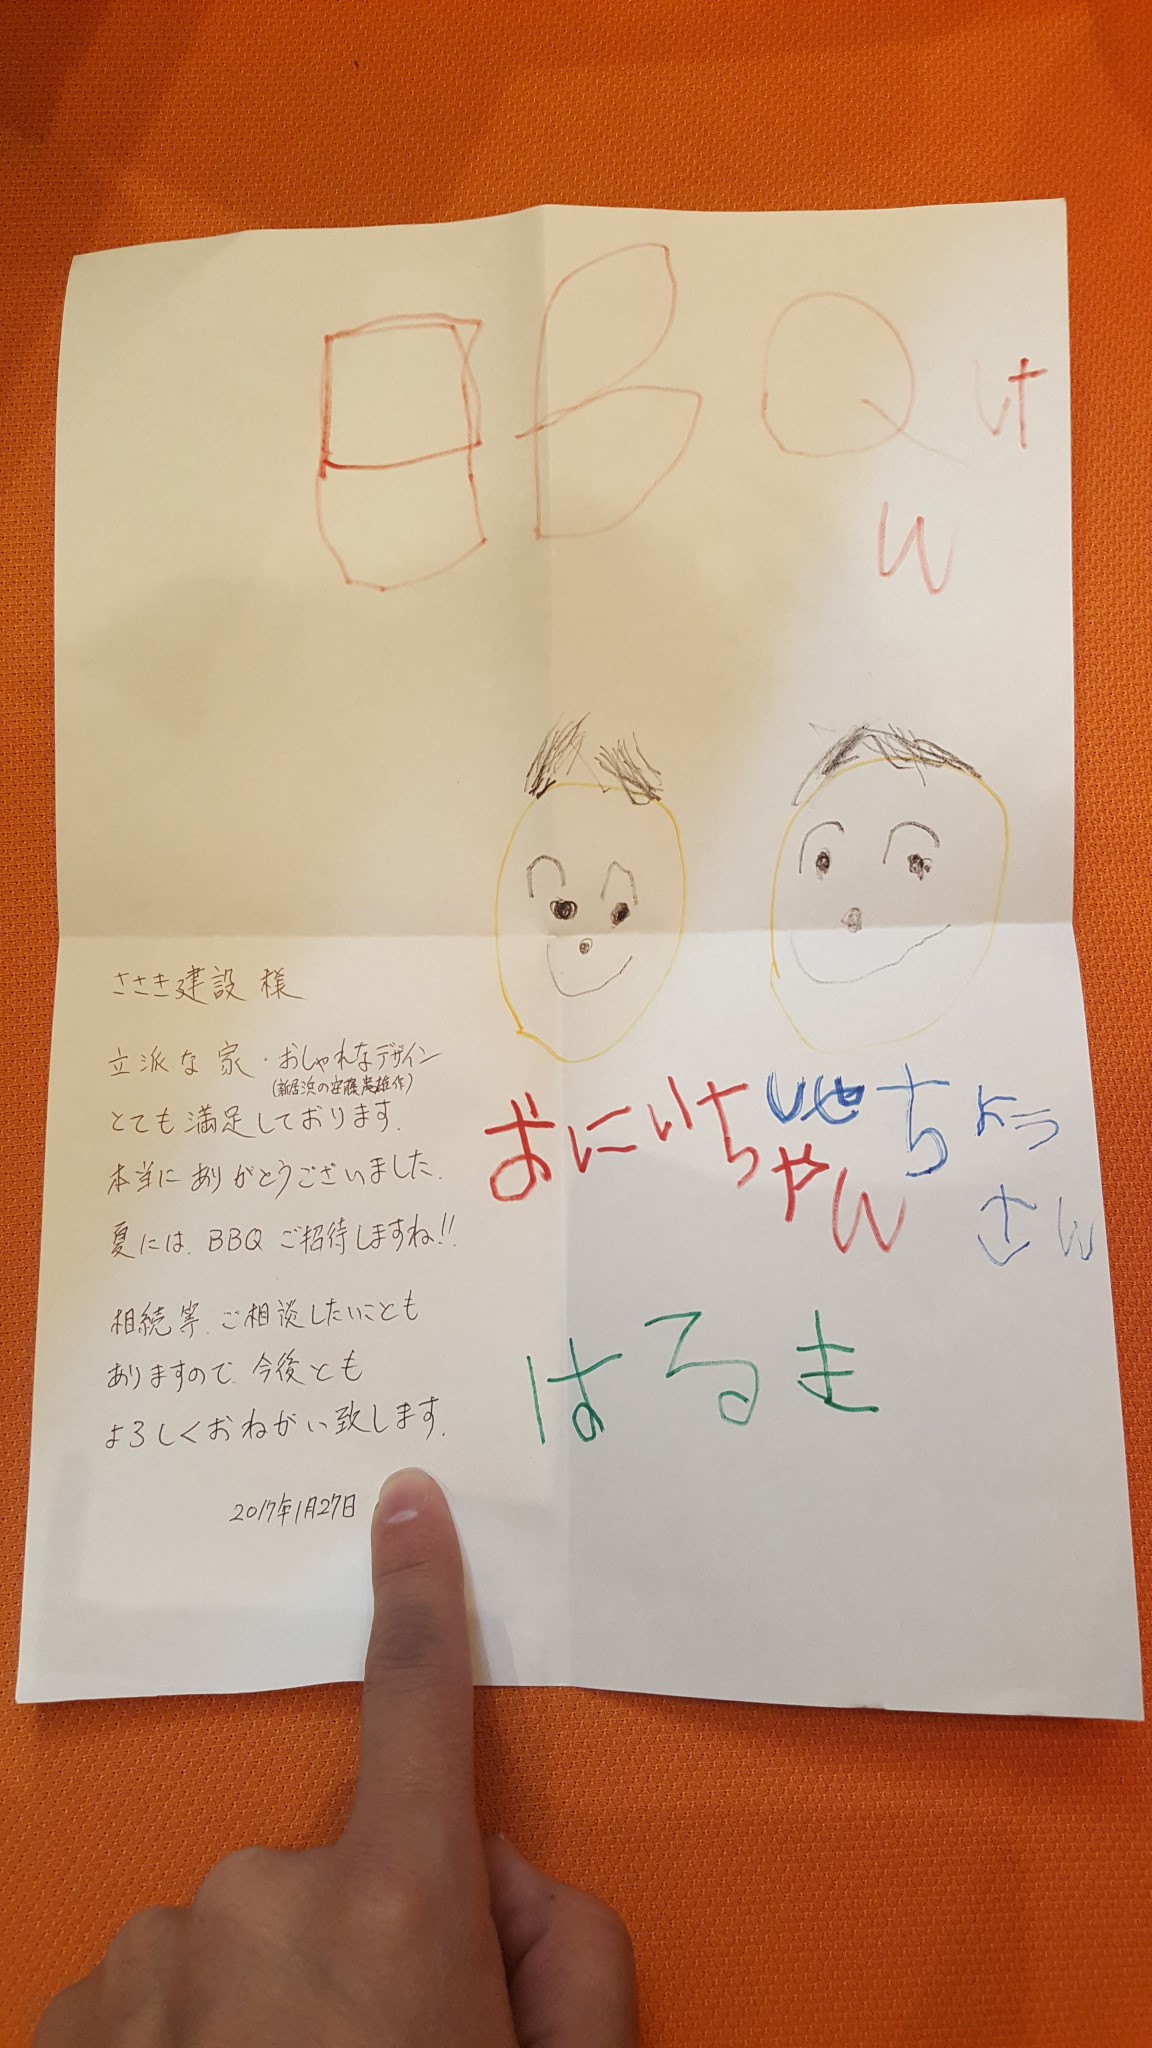 BBQけ
ん
ささき建設 様
立派な家・おしゃれなデザイン
(新居浜の安藤忠雄作)
とても満足しております.
本当にありがとうございました.
夏には、BBQ ご招待しますね!!
相続等、ご相談したいことも
ありますので、今後とも
よろしくおねがい致します.
2017年1月27日
おにいちゃん
しゃちょう
さん
はるき